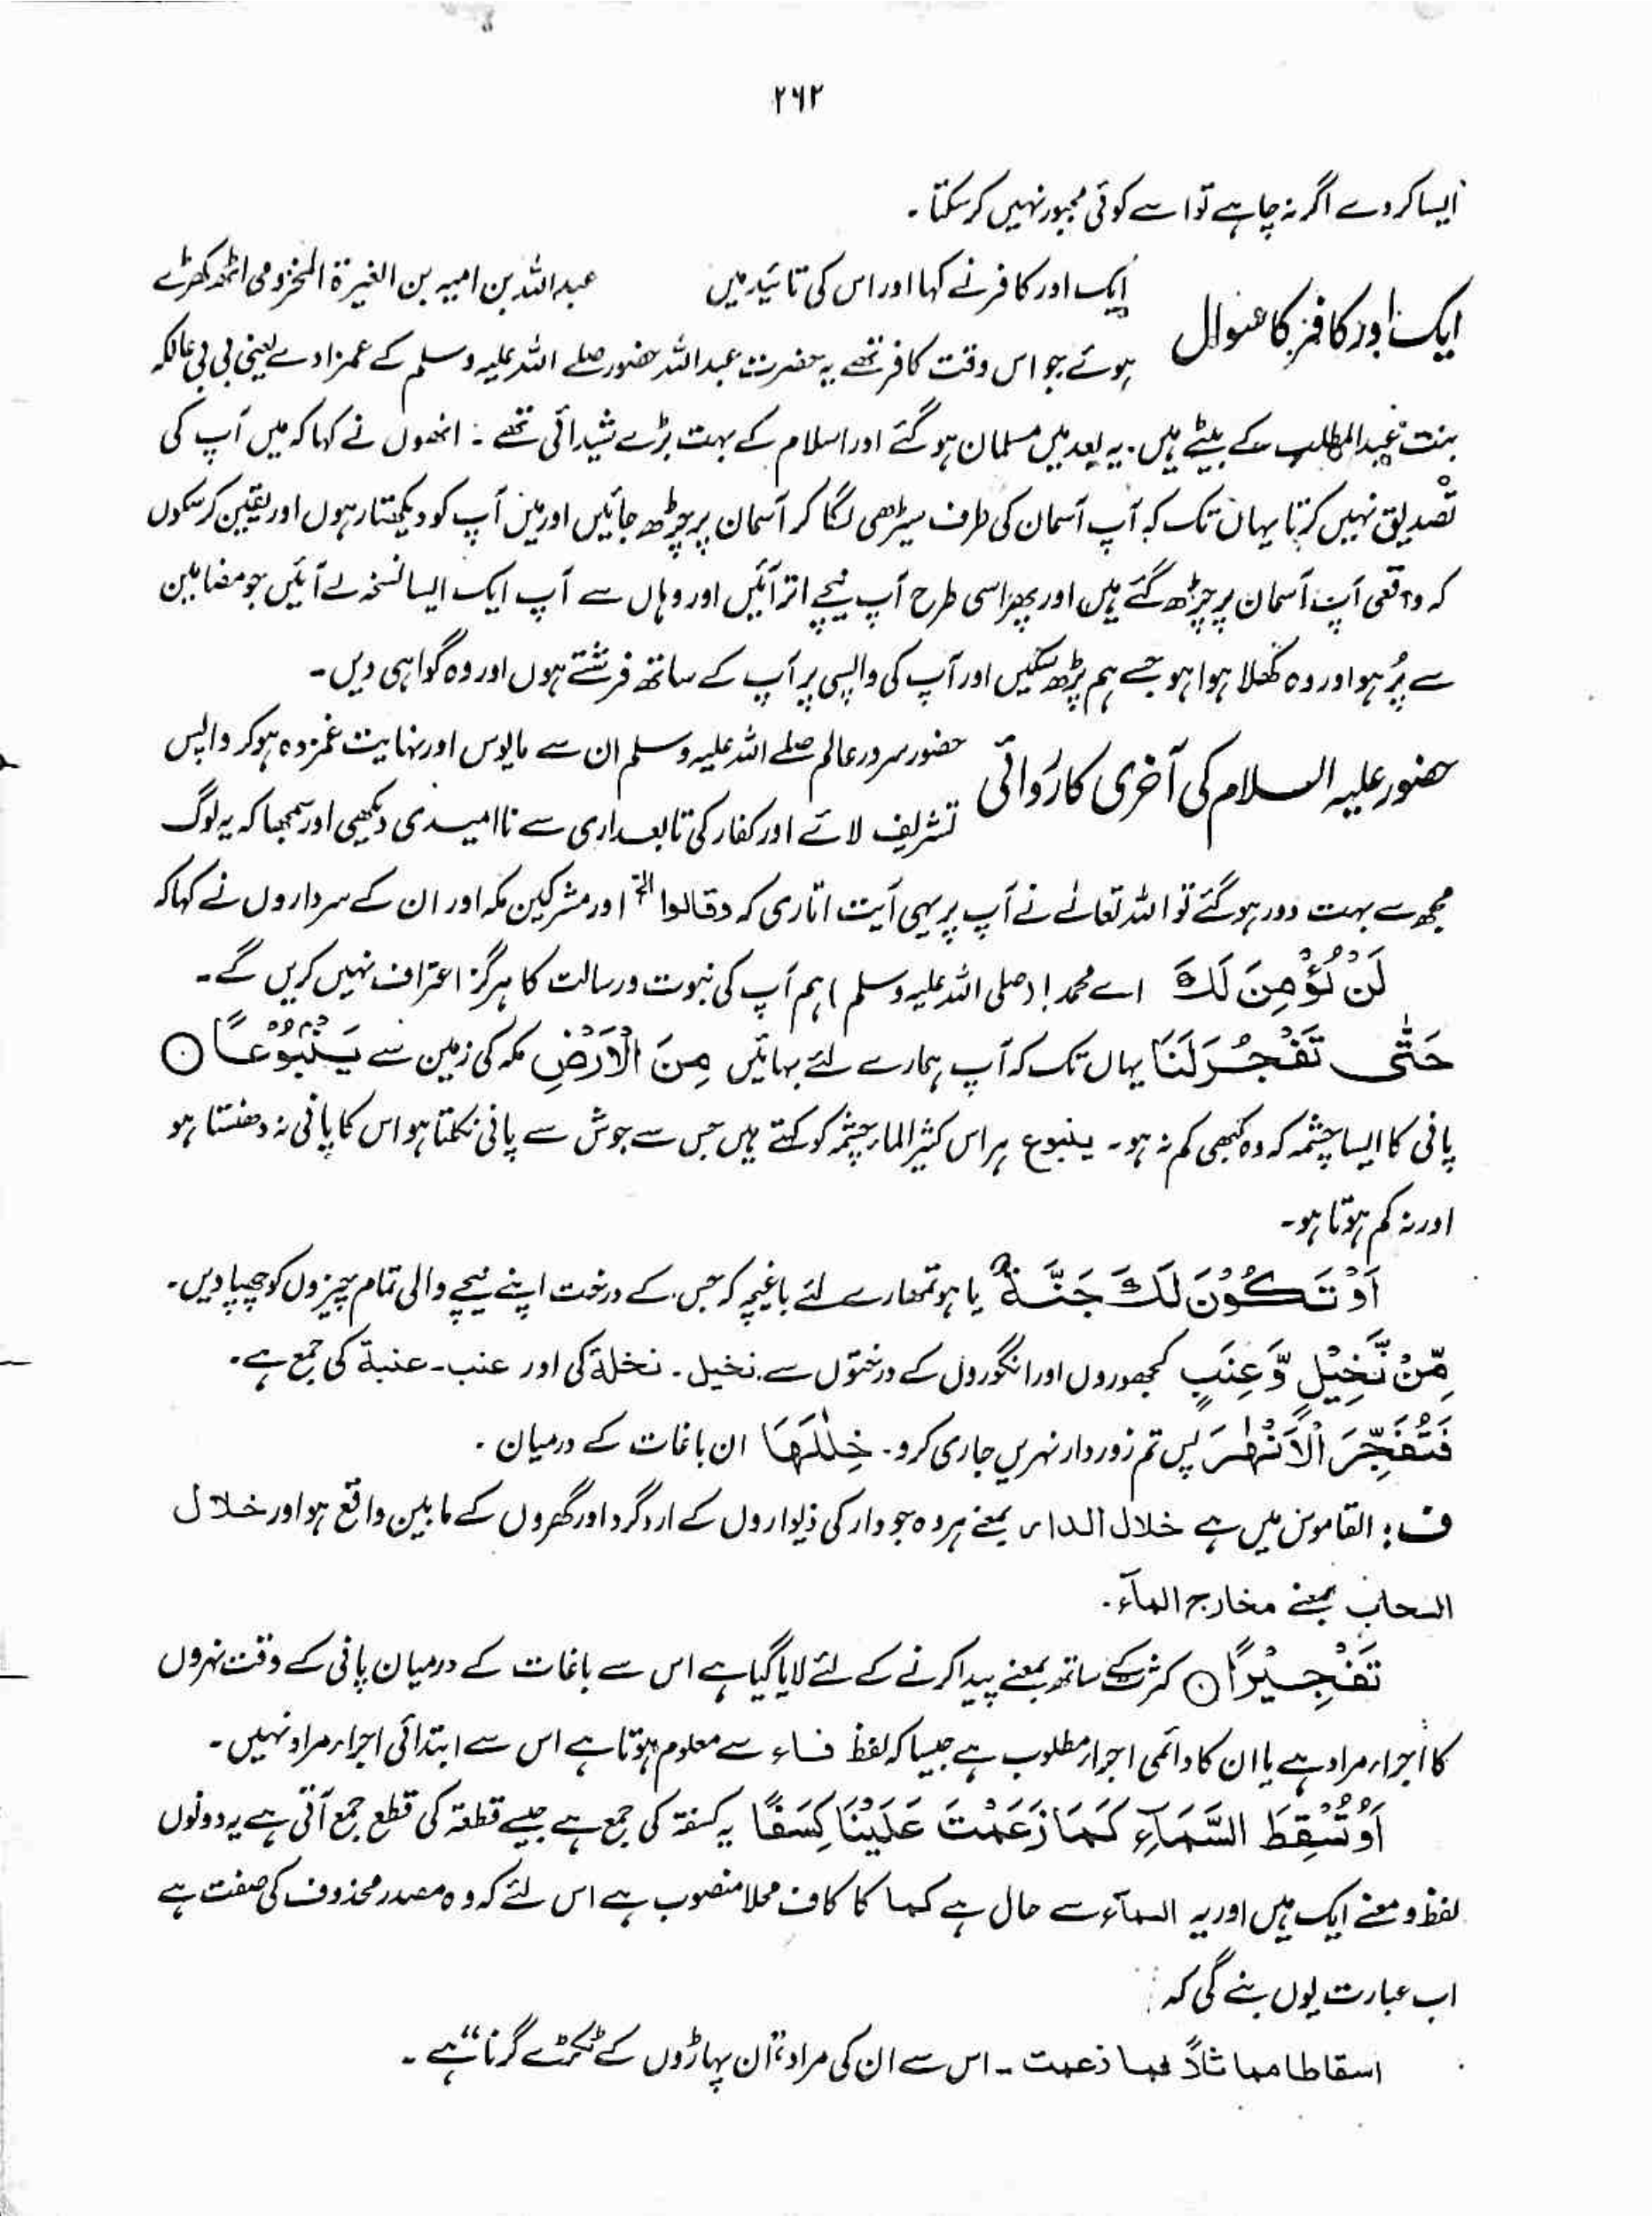 ۲۶۲
ایسا کردے اگر نہ چاہے تو اسے کوئی مجبور نہیں کرسکتا۔
ایک اور کافر کا سوال
ایک اور کافر نے کہا اور اس کی تائید میں عبداللہ بن امیہ بن الغیرۃ المخزومی اٹھ کھڑے
ہوئے جو اس وقت کافر تھے یہ حضرت عبداللہ حضور صلے اللہ علیہ وسلم کے عمزادے یعنی بی بی عاتکہ
بنت عبدالمطلب کے بیٹے ہیں۔ یہ بعد میں مسلمان ہوگئے اور اسلام کے بہت بڑے شیدائی تھے۔ انھوں نے کہا کہ میں آپ کی
تصدیق نہیں کرتا یہاں تک کہ آپ آسمان کی طرف سیڑھی لگا کر آسمان پر چڑھ جائیں اور میں آپ کو دیکھتا رہوں اور یقین کرسکوں
کہ واقعی آپ آسمان پر چڑھ گئے ہیں اور پھر اسی طرح آپ نیچے اتر آئیں اور وہاں سے آپ ایک ایسا نسخہ لے آئیں جو مضامین
سے پُر ہو اور وہ کھلا ہوا ہو جسے ہم پڑھ سکیں اور آپ کی واپسی پر آپ کے ساتھ فرشتے ہوں اور وہ گواہی دیں۔
حضور علیہ السلام کی آخری کاروائی
حضور سرور عالم صلے اللہ علیہ وسلم ان سے مایوس اور نہایت غمزدہ ہوکر واپس
تشریف لائے اور کفار کی تابعداری سے ناامیدی دیکھی اور سمجھا کہ یہ لوگ
مجھ سے بہت دور ہوگئے تو اللہ تعالےٰ نے آپ پر یہی آیت اتاری کہ وقالوا الخ اور مشرکین مکہ اور ان کے سرداروں نے کہا کہ
لَنْ نُّؤْمِنَ لَكَ اے محمد! (صلی اللہ علیہ وسلم) ہم آپ کی نبوت و رسالت کا ہرگز اعتراف نہیں کریں گے۔
حَتّٰى تَفْجُرَ لَنَا یہاں تک کہ آپ ہمارے لئے بہائیں مِنَ الْاَرْضِ مکہ کی زمین سے يَنْبُوْعًا ○
پانی کا ایسا چشمہ کہ وہ کبھی کم نہ ہو۔ ینبوع ہر اس کثیر الماء چشمہ کو کہتے ہیں جس سے جوش سے پانی نکلتا ہو اس کا پانی نہ دھنستا ہو
اور نہ کم ہوتا ہو۔
اَوْ تَكُوْنَ لَكَ جَنَّةٌ یا ہو تمھارے لئے باغیچہ کہ جس کے درخت اپنے نیچے والی تمام چیزوں کو چھپا دیں۔
مِّنْ نَّخِيْلٍ وَّعِنَبٍ کھجوروں اور انگوروں کے درختوں سے۔ نخیل۔ نخلة کی اور عنب۔ عنبة کی جمع ہے۔
فَتُفَجِّرَ الْاَنْهٰرَ پس تم زوردار نہریں جاری کرو۔ خِلٰلَهَا ان باغات کے درمیان۔
ف: القاموس میں ہے خلال الدار بمعنے ہر وہ جو دار کی دیواروں کے ارد گرد اور گھروں کے مابین واقع ہو اور خلال
السحاب بمعنے مخارج الماء۔
تَفْجِيْرًا ○ کثرت کے ساتھ بمعنے پیدا کرنے کے لئے لایا گیا ہے اس سے باغات کے درمیان پانی کے وقت نہروں
کا اجراء مراد ہے یا ان کا دائمی اجراء مطلوب ہے جیسا کہ لفظ فاء سے معلوم ہوتا ہے اس سے ابتدائی اجراء مراد نہیں۔
اَوْ تُسْقِطَ السَّمَآءَ كَمَا زَعَمْتَ عَلَيْنَا كِسَفًا یہ کسفۃ کی جمع ہے جیسے قطعۃ کی قطع جمع آتی ہے یہ دونوں
لفظ و معنے ایک ہیں اور یہ السمآء سے حال ہے کما کا کاف محلا منصوب ہے اس لئے کہ وہ مصدر محذوف کی صفت ہے
اب عبارت یوں بنے گی کہ
اسقاطا مماثلاً لما زعمت۔ اس سے ان کی مراد "ان پہاڑوں کے ٹکڑے گرنا" ہے۔